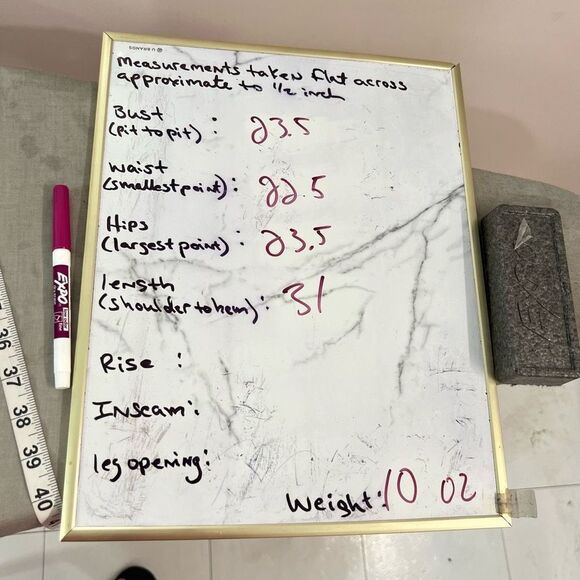 U BRANDS
measurements taken flat across
approximate to 1/2 inch
Bust
(pit to pit) : 23.5
waist
(smallest point) : 22.5
Hips
(largest point) : 23.5
length
(shoulder to hem) : 31
Rise :
Inseam :
leg opening :
Weight : 10 oz
EXPO
36
37
38
39
40